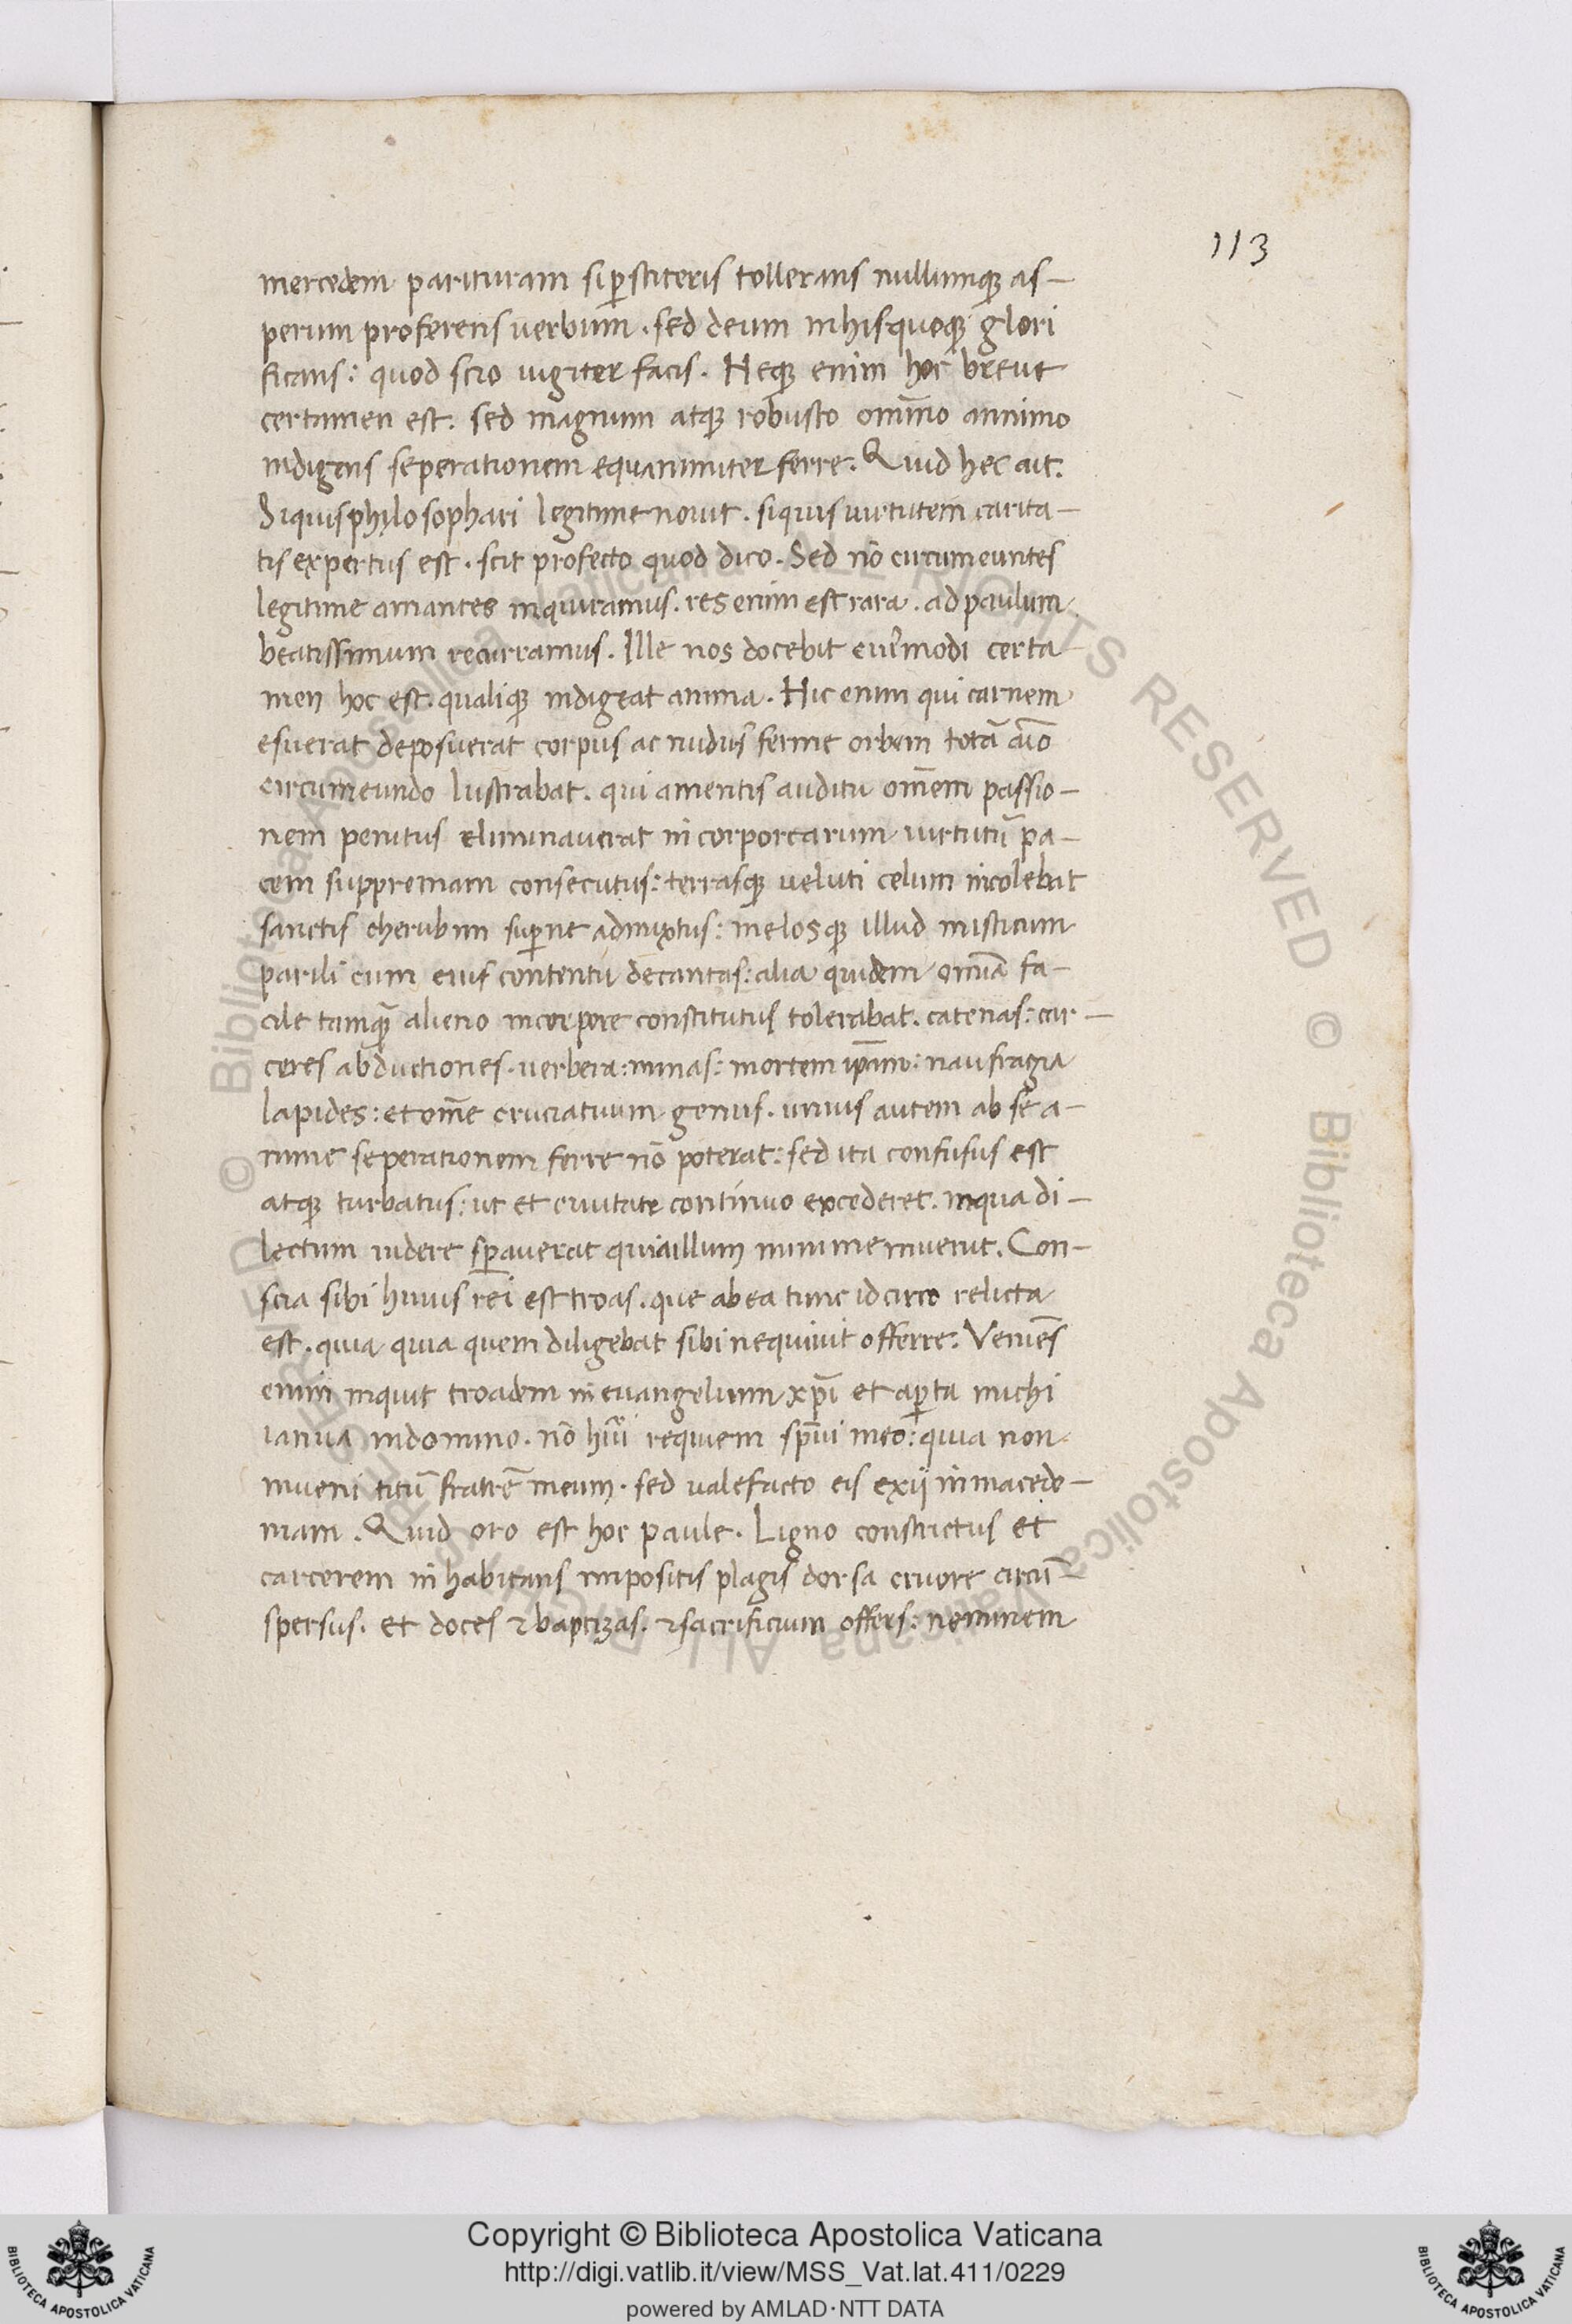 113
mercedem parituram si ꝑstiteris tollerans nullumqꝫ as-
perum proferens verbum. sed deum in his quoqꝫ glori
ficans: quod scio iugiter facis. Neqꝫ enim hoc breve
certamen est. sed magnum atqꝫ robusto om̅ino annimo
indigens seperationem equanimiter ferre. Quid hec ait.
Siquis phylosophari legitime novit. siquis virtutem carita-
tis expertus est. scit profecto quod dico. Sed no̅ circumeuntes
legitime amantes inquiramus. res enim est rara. ad paulum
beatissimum recurramus. Ille nos docebit cuiˀmodi certa
men hoc est. qualiqꝫ indigeat anima. Hic enim qui carnem
esuerat deposuerat corpus ac nudus ferme orbem totā aīo
circumeundo lustrabat. qui a mentis auditu om̅em passio-
nem penitus eliminaverat incorporearum virtutū pa-
cem suppremam consecutus: terrasqꝫ veluti celum incolebat
sanctis cherubim suꝑne admixtus: melosqꝫ illud misticum
parili cum eius contentu decantas: alia quidem om̅ia fa-
cile tamqꝫ̄ alieno in corpore constitutus tolerabat. catenas: car-
ceres abductiones. verbera: minas: mortem ip̅am: naufragia
lapides: et om̅e cruciatuum genus. unius autem ab se a-
nime seperationem ferre no̅ poterat: sed ita confusus est
atqꝫ turbatus: ut et civitate continuo excederet. in qua di-
lectum videre sꝑaverat quia illum minime invenit. Con-
scia sibi huius rei est troas. que ab ea tunc idcirco relicta
est. quia quia quem diligebat sibi nequivit offerre. Venie̅s
enim inquit troadem in evangelium xp̅i et aꝑta michi
ianua in domino. no̅ hūi requiem sp̅ui meo: quia non
inveni titū fratrē meum. sed valefacto eis exii in macedo-
niam. Quid oro est hoc paule. Ligno constrictus et
carcerem inhabitans impositis plagis dorsa cruore circū-
spersus. et doces ⁊ baptizas. ⁊ sacrificium offers: neminem
© Biblioteca Apostolica Vaticana ALL RIGHTS RESERVED © Biblioteca Apostolica Vaticana ALL RIGHTS RESERVED
Copyright © Biblioteca Apostolica Vaticana
http://digi.vatlib.it/view/MSS_Vat.lat.411/0229
powered by AMLAD·NTT DATA
BIBLIOTECA APOSTOLICA VATICANA
BIBLIOTECA APOSTOLICA VATICANA